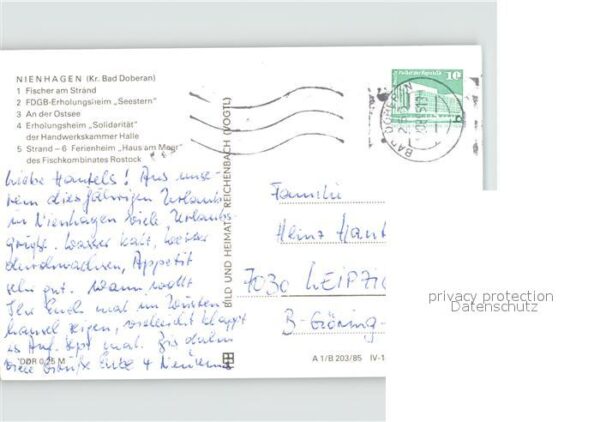 NIENHAGEN (Kr. Bad Doberan)
1 Fischer am Strand
2 FDGB-Erholungsheim „Seestern"
3 An der Ostsee
4 Erholungsheim „Solidarität"
der Handwerkskammer Halle
5 Strand – 6 Ferienheim „Haus am Meer"
des Fischkombinates Rostock
Liebe Hantels! Aus unse-
rem diesjährigen Urlaub
in Nienhagen viele Urlaubs-
grüße. Wasser kalt, Wetter
durchwachsen, Appetit
sehr gut. Wann wollt
Ihr Euch mal im
zeigen, vielleicht klappt
es Anf. Sept. mal. Bis dahin
viele Grüße Eure 4
DDR 0,25 M
BILD UND HEIMAT REICHENBACH (VOGTL)
Palast der Republik
10
BAD DOBERAN
Familie
Heinz Hant
7030 LEIPZIG
B-Göring-
A 1/B 203/85 IV-1
privacy protection
Datenschutz